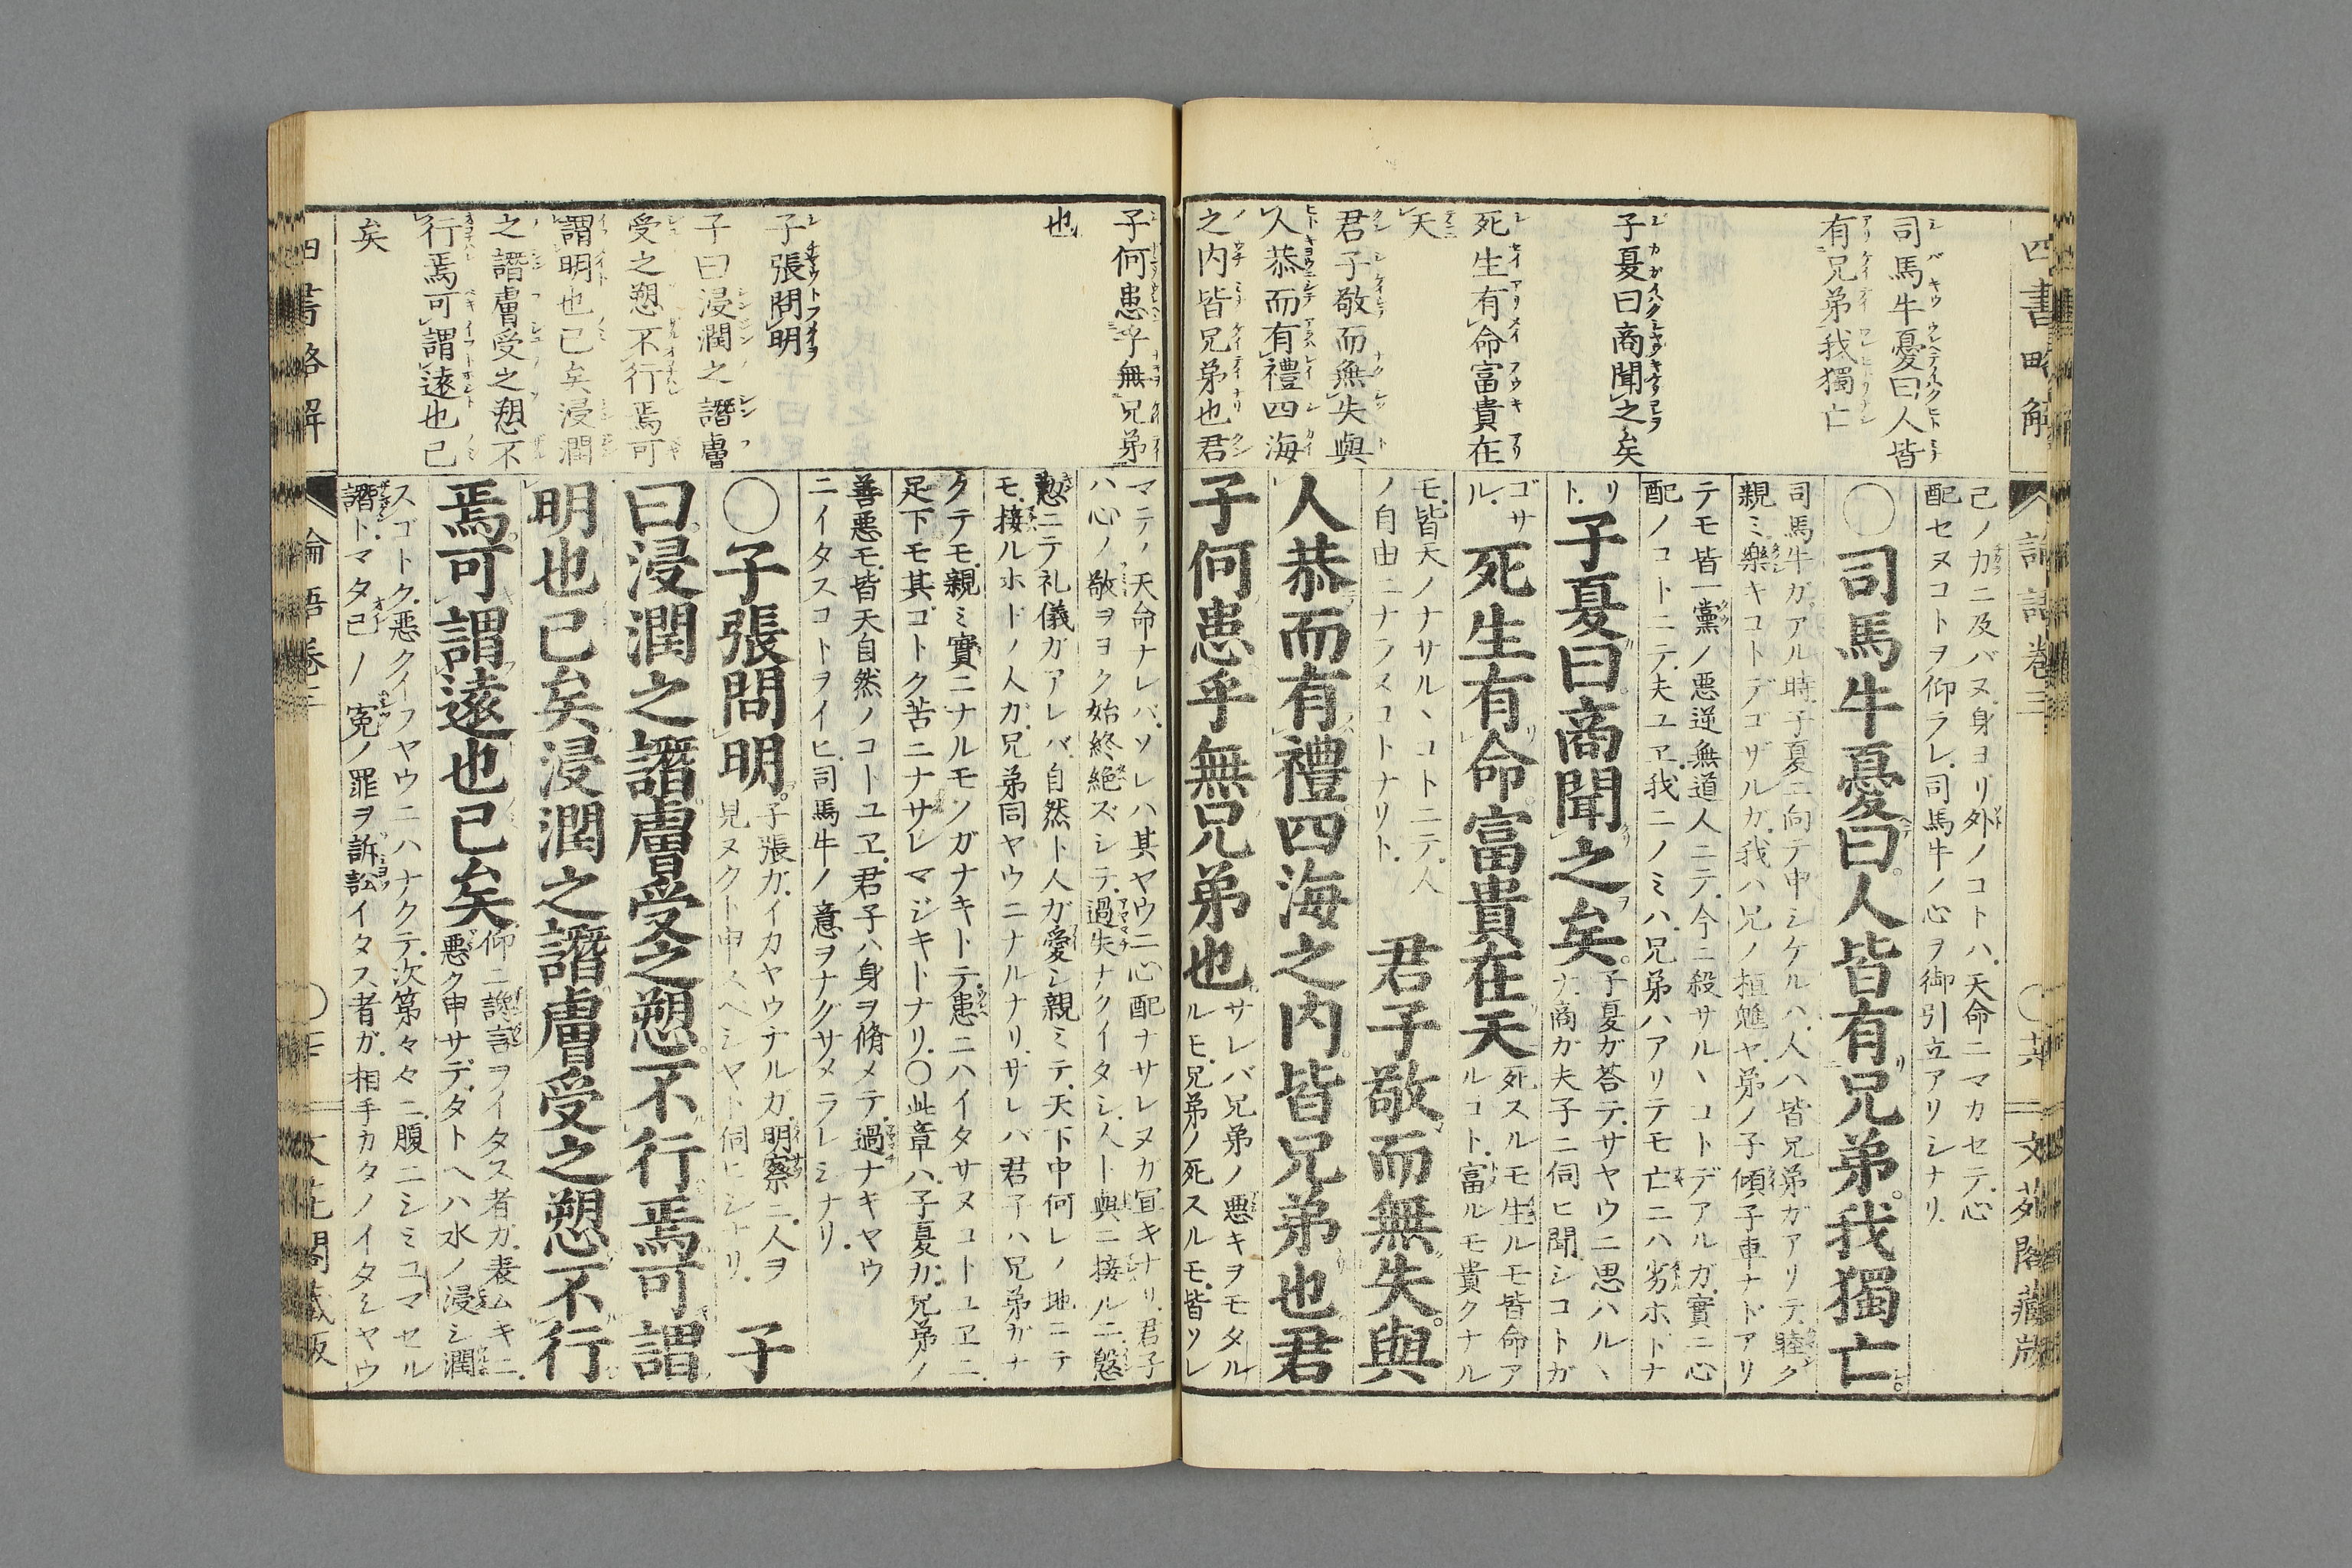 四書略解
論語卷三
文苑閣藏版
司馬牛憂曰人皆
有兄弟我獨亡
子夏曰商聞之矣
死生有命富貴在
天
君子敬而無失與
人恭而有禮四海
之内皆兄弟也君
己ノ力ニ及バヌ身ヨリ外ノコトハ天命ニマカセテ心
配セヌコトヲ仰ラレ司馬牛ノ心ヲ御引立アリシナリ
〇司馬牛憂曰人皆有兄弟我獨亡
司馬牛ガアル時子夏ニ向テ申シケルハ人々ハ皆兄弟ガアリテ睦ク
親ミ樂キコトデゴザルガ我ハ兄ノ桓魋ヤ弟ノ子頎子車ナドアリ
テモ皆一黨ノ悪逆無道人ニテ今ニ殺サルヽコトデアルガ實ニ心
配ノコトニテ夫ユヱ我ニノミハ兄弟ハアリテモ亡ニハ劣ホドナ
リ
ト
子夏曰商聞之矣
子夏ガ荅テサヤウニ思ハルヽ
ナ商ガ夫子ニ伺ヒ聞シコトガ
ゴサ
ル
死生有命富貴在天
死スルモ生ルモ皆命ア
ルコト富ルモ貴クナル
モ皆天ノナサルヽコトニテ人
ノ自由ニナラヌコトナリト
君子敬而無失與
人恭而有禮四海之内皆兄弟也君
子何患乎無兄弟也
サレバ兄弟ノ悪キヲモタル
ルモ兄弟ノ死スルモ皆ソレ
子何患乎無兄弟
也
子張問明
子曰浸潤之譖膚
受之愬不行焉可
謂明也已矣浸潤
之譖膚受之愬不
行焉可謂遠也已
矣
マテノ天命ナレバソレハ其ヤウニ心配ナサレヌガ宜キナリ君子
ハ心ノ敬ヲヨク始終絶ズシテ過失ナクイタシ人ト與ニ接ルニ慇
懃ニテ礼儀ガアレバ自然ト人ガ愛シ親ミテ天下中何レノ地ニテ
モ接ルホドノ人ガ兄弟同ヤウニナルナリサレバ君子ハ兄弟ガナ
クテモ親ミ實ニナルモノガナキトテ患ニハイタサヌコトユヱニ
足下モ其ゴトク苦ニナサレマジキトナリ〇此章ハ子夏ガ兄弟ノ
善悪モ皆天自然ノコトユヱ君子ハ身ヲ脩メテ過ナキヤウ
ニイタスコトヲイヒ司馬牛ノ意ヲナグサメラレシナリ
〇子張問明
子張ガイカヤウナルガ明察ニ人ヲ
見ヌクト申スベシヤト伺ヒシナリ
子
曰浸潤之譖膚受之愬不行焉可謂
明也已矣浸潤之譖膚受之愬不行
焉可謂遠也已矣
仰ニ讒言ヲイタス者ガ表ムキニ
悪ク申サデタトヘハ水ノ浸シ潤
スゴトク悪クイフヤウニハナクテ次第々々ニ腹ニシミコマセル
譖トマタ己ノ冤ノ罪ヲ訴訟イタス者ガ相手カタノイタシヤウ
四書略解
論語卷三
文苑閣藏版